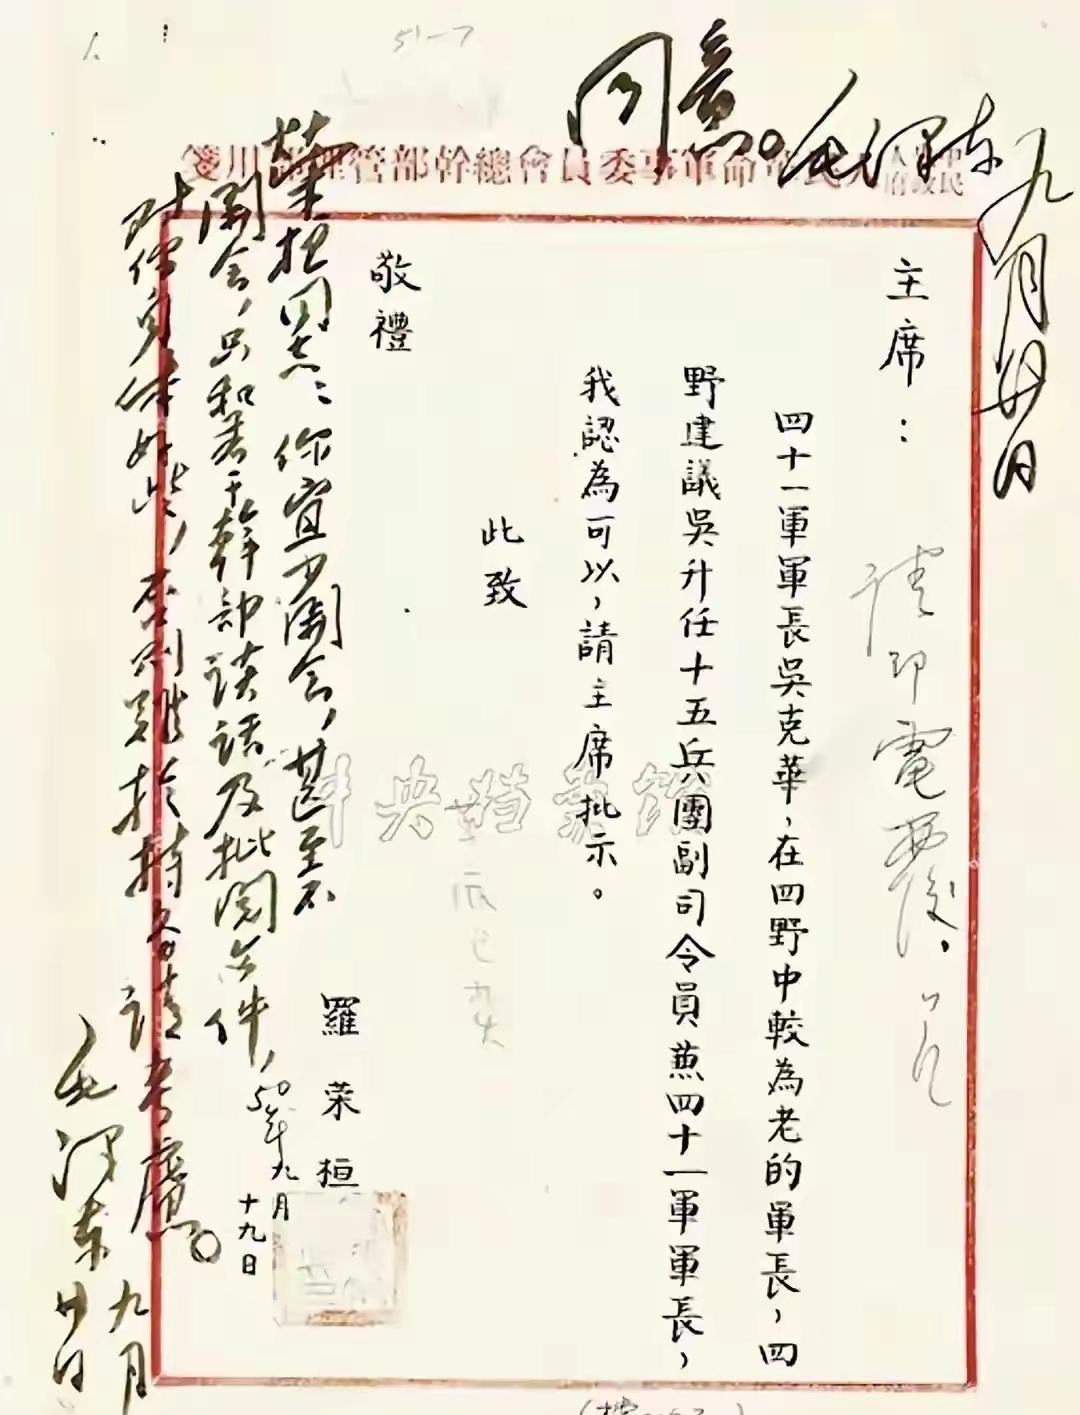 同意。毛泽东
九月廿日
人民革命軍事委員會總幹部管理部用箋
主席：
四十一軍軍長吳克華，在四野中較為老的軍長，四
野建議吳升任十五兵團副司令員兼四十一軍軍長，
我認為可以，請主席批示。
此致
敬禮
羅荣桓
50年九月
十九日
请印電覆，
荣桓同志：你宜少開会，甚至不
開会，只和若干幹部談話及批閱文件，
对你身体好些，否则难於持久請考慮。
毛泽东
九月
廿日
中央档案馆
51-7